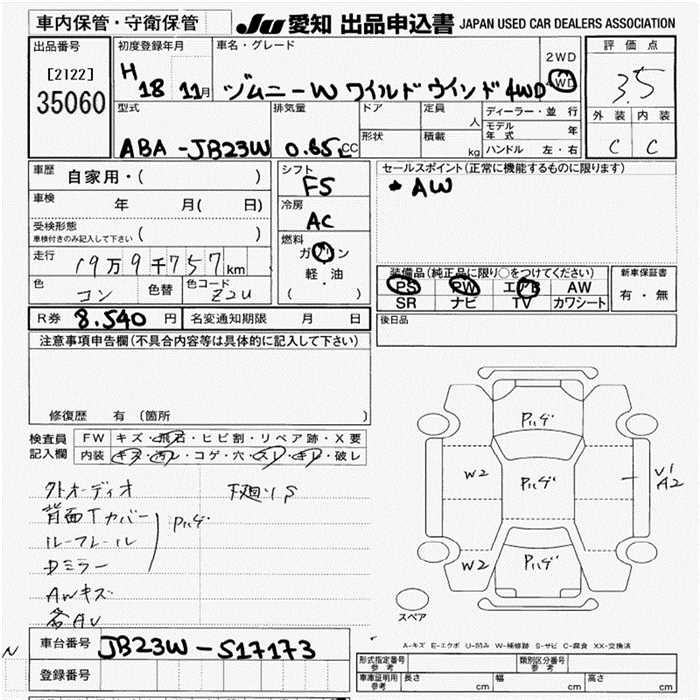 車内保管・守衛保管
JU 愛知 出品申込書 JAPAN USED CAR DEALERS ASSOCIATION
出品番号
[2122]
35060
初度登録年月
H 18 11月
車名・グレード
ジムニーW ワイルドウインド 4WD
2WD
4WD
評価点
3.5
外装 内装
C C
型式
ABA-JB23W
排気量
0.65L CC
ドア
形状
定員 人
積載 kg
ディーラー・並行
モデル年式 年
ハンドル 左・右
車歴 自家用・( )
車検 年 月( 日)
受検形態
車検付きのみ記入して下さい ( )
走行 19万9千757km
色 コン 色替 色コード Z2U
シフト
F5
冷房
AC
燃料
ガソリン
軽・油
( )
セールスポイント(正常に機能するものに限ります)
* AW
装備品(純正品に限り○をつけてください)
PS PW エアB AW
SR ナビ TV カワシート
新車保証書
有・無
R券 8.540 円 名変通知期限 月 日
後日品
注意事項申告欄(不具合内容等は具体的に記入して下さい)
修復歴 有 (箇所 )
検査員記入欄
FW キズ・飛石・ヒビ割・リペア跡・X要
内装 キズ・汚レ・コゲ・穴・スレ・キレ・破レ
外オーディオ 下廻りS
背面Tカバー
ルーフレール
ドミラー
Pハゲ
AWキズ
各AU
Pハゲ
W2 Pハゲ
V1
A2
W2 Pハゲ
スペア
A-キズ E-エクボ U-凹み W-補修跡 S-サビ C-腐食 XX-交換済
N
車台番号 JB23W-517173
登録番号
形式指定番号 参考
類別区分番号 参考
車庫証明用 参考 長さ cm 幅 cm 高さ cm